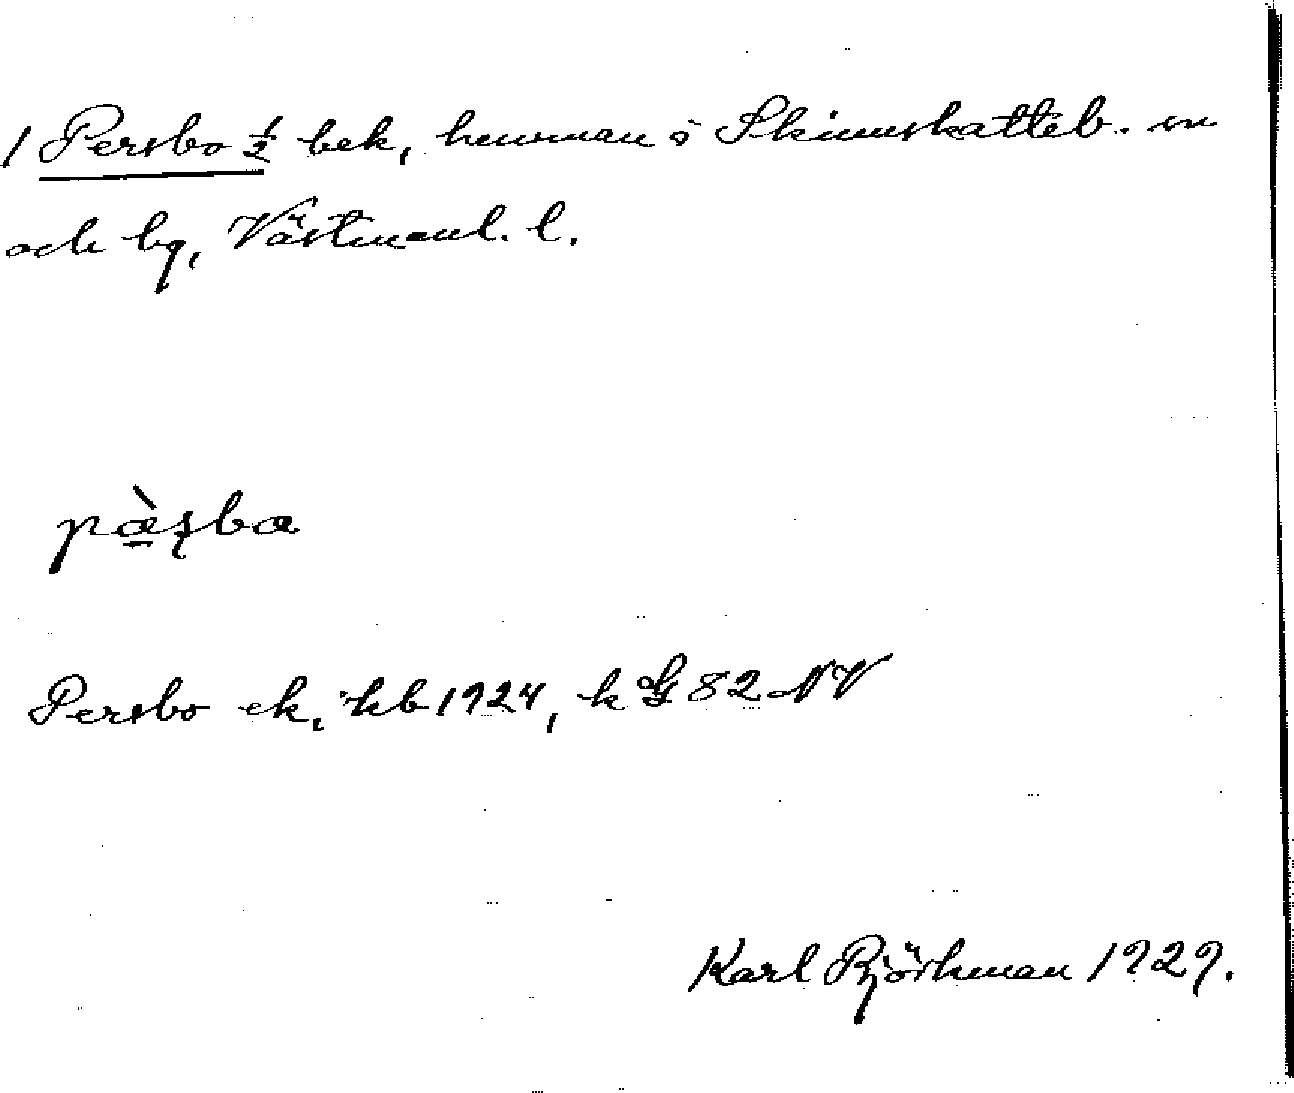 1 Persbo ½ bek, hemman i Skinnskatteb. sn
och bg, Västmanl. l.
pæ̀ʂba
Persbo ek, kb 1924, k G 82 NV
Karl Björkman 1929.